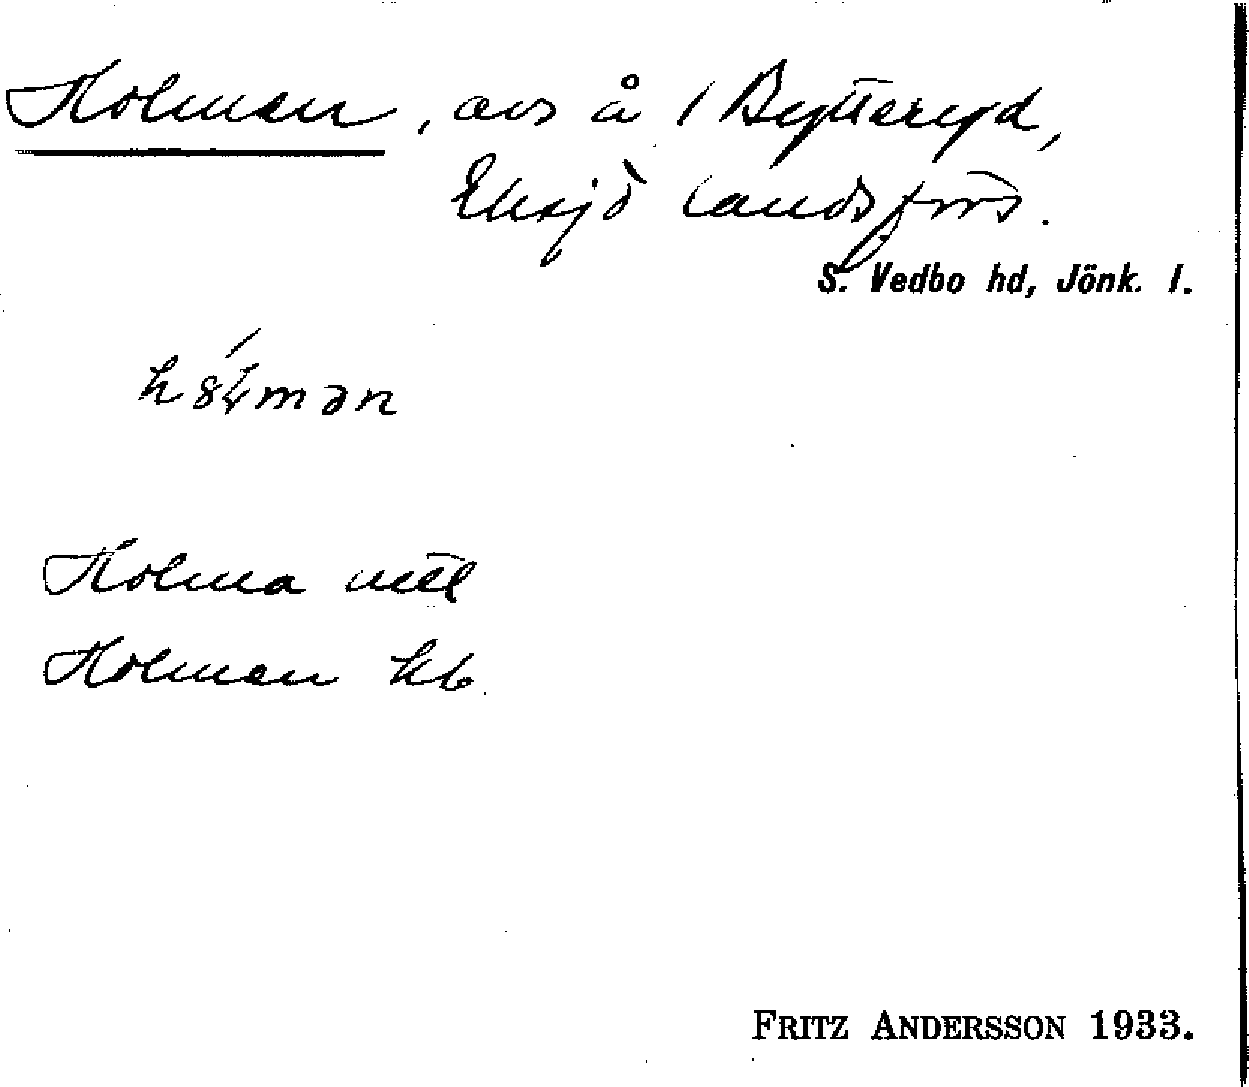 Holmen, avs å 1 Bytteryd,
Eksjö landsförs.
S. Vedbo hd, Jönk. l.
Holma mtl
Holmen hb
FRITZ ANDERSSON 1933.